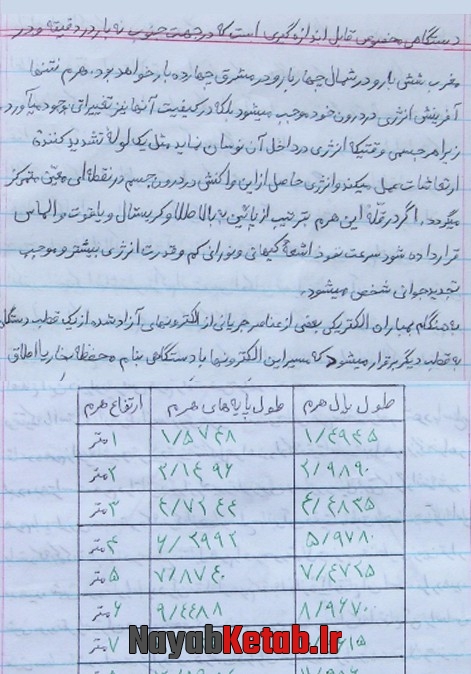 دستگاهی مخصوص قابل اندازه گیری است که در جهت جنوب نه بار در دقیقه و در
مغرب شش بار و در شمال چهار بار و در مشرق چهارده بار خواهد بود. هرم نتنها
آفرینش انرژی در درون خود موجب میشود بلکه در کیفیت آنها نیز تغییراتی بوجود میآورد
زیرا هر جسمی وقتیکه انرژی در داخل آن نوسان نماید مثل یک لولهٔ تشدید کنندهٔ
ارتعاشات عمل میکند و انرژی حاصل از این واکنش در درون جسم در نقطه ای معین متمرکز
میگردد. اگر در قلّه این هرم بترتیب از پائین به بالا طلا و کریستال و یاقوت و الماس
قرار داده شود سرعت نفوذ اشعهٔ کیهانی و نورانی کم و قدرت انرژی بیشتر و موجب
تجدید جوانی شخص میشود.
به هنگام بمباران الکتریکی بعضی از عناصر جریانی از الکترونهای آزاد شده از یک قطب دستگاه
به قطب دیگر برقرار میشود که مسیر این الکترونها با دستگاهی بنام محفظهٔ بخار یا اطاق
ارتفاع هرم طول پایه های هرم طول یال هرم
۱ متر ۱/۵۷۴۸ ۱/۴۹۴۵
۲ متر ۳/۱۴۹۶ ۲/۹۸۹۰
۳ متر ۴/۷۲۴۴ ۴/۴۸۳۵
۴ متر ۶/۲۹۹۲ ۵/۹۷۸۰
۵ متر ۷/۸۷۴۰ ۷/۴۷۲۵
۶ متر ۹/۴۴۸۸ ۸/۹۶۷۰
۷ متر
NayabKetab.Ir